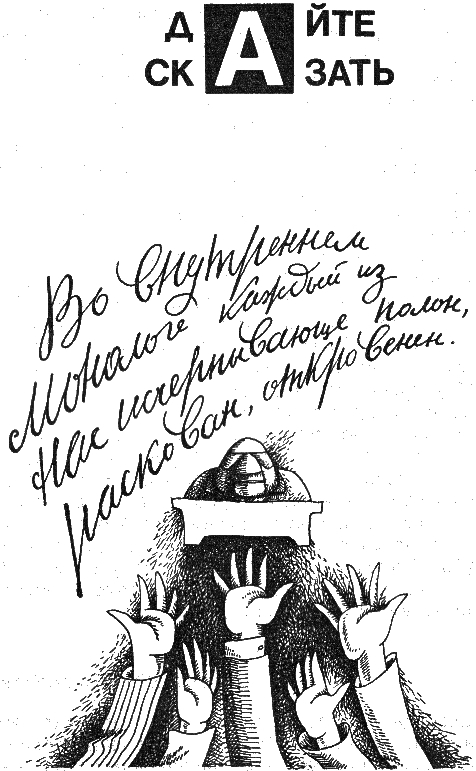 ДАЙТЕ
СКАЗАТЬ
Во внутреннем
монологе каждый из
нас исчерпывающе полон,
раскован, откровенен.